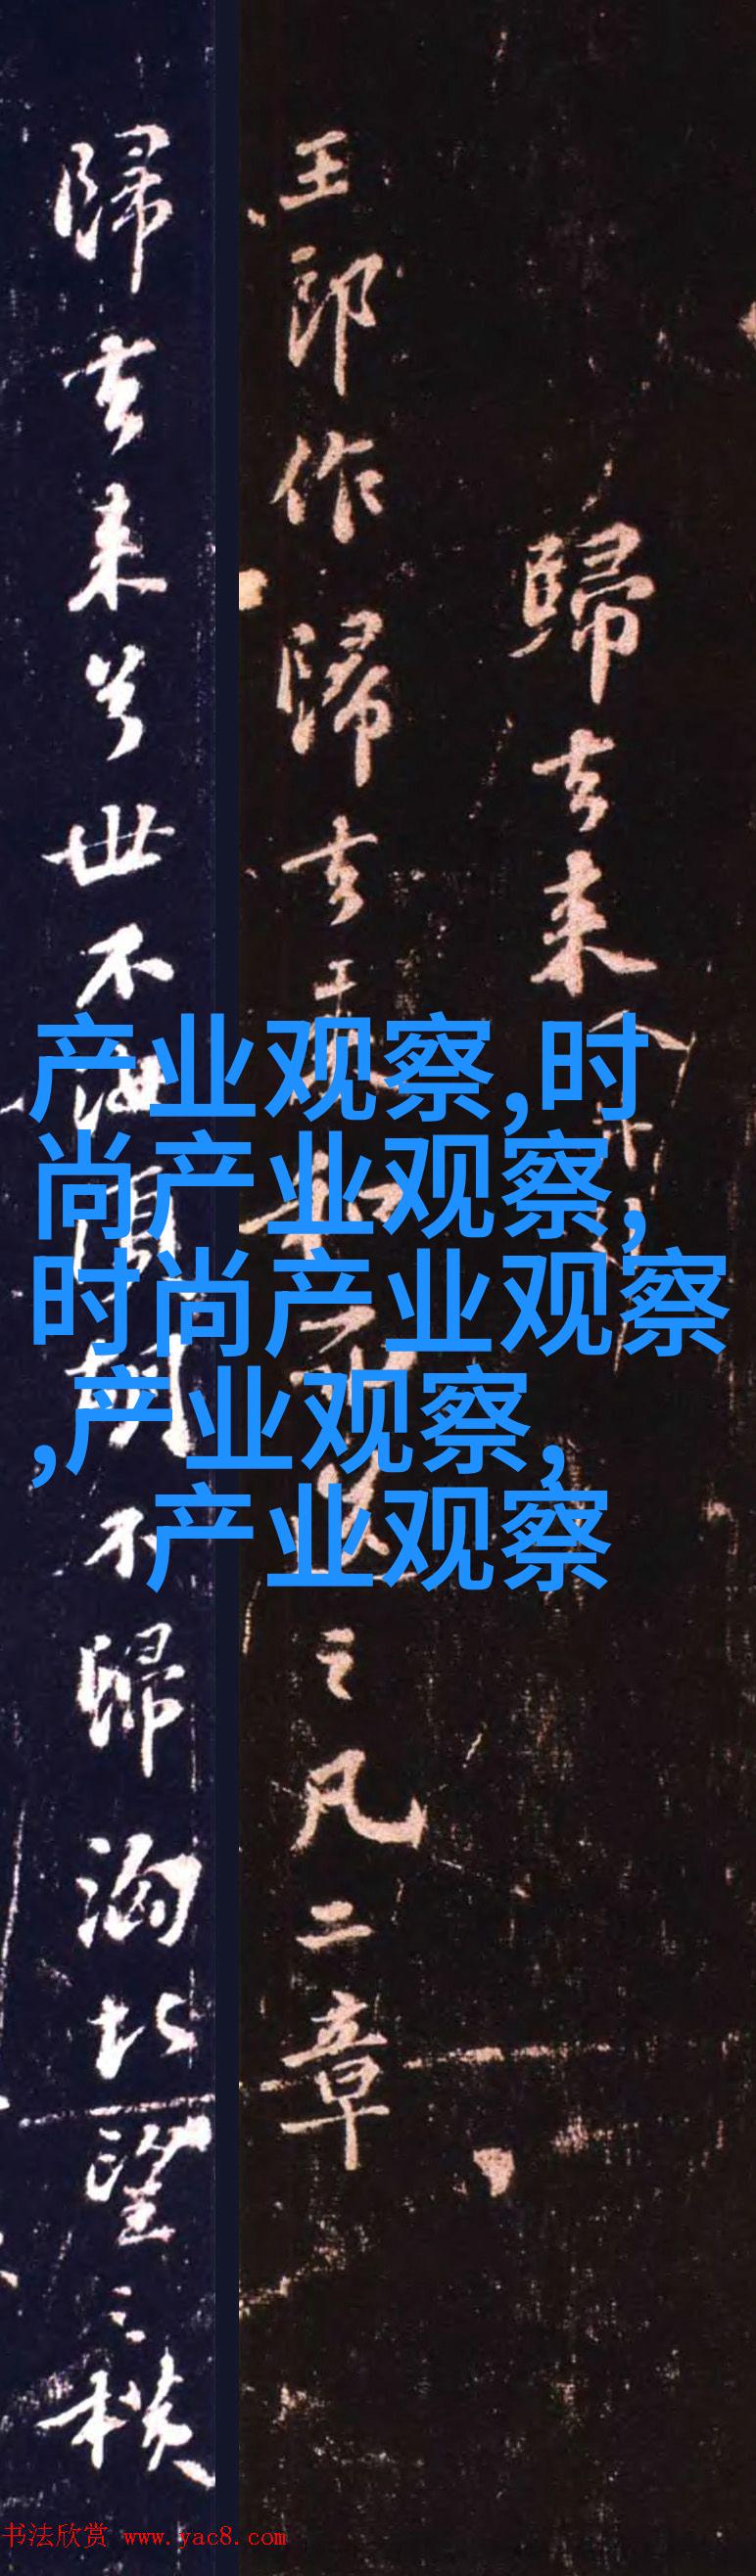 歸去来
王郎作歸去来
之凡二章
歸去来兮世不
不歸海北望之
产业观察,时
尚产业观察,
时尚产业观察
,产业观察,
产业观察
书法欣赏 www.yac8.com